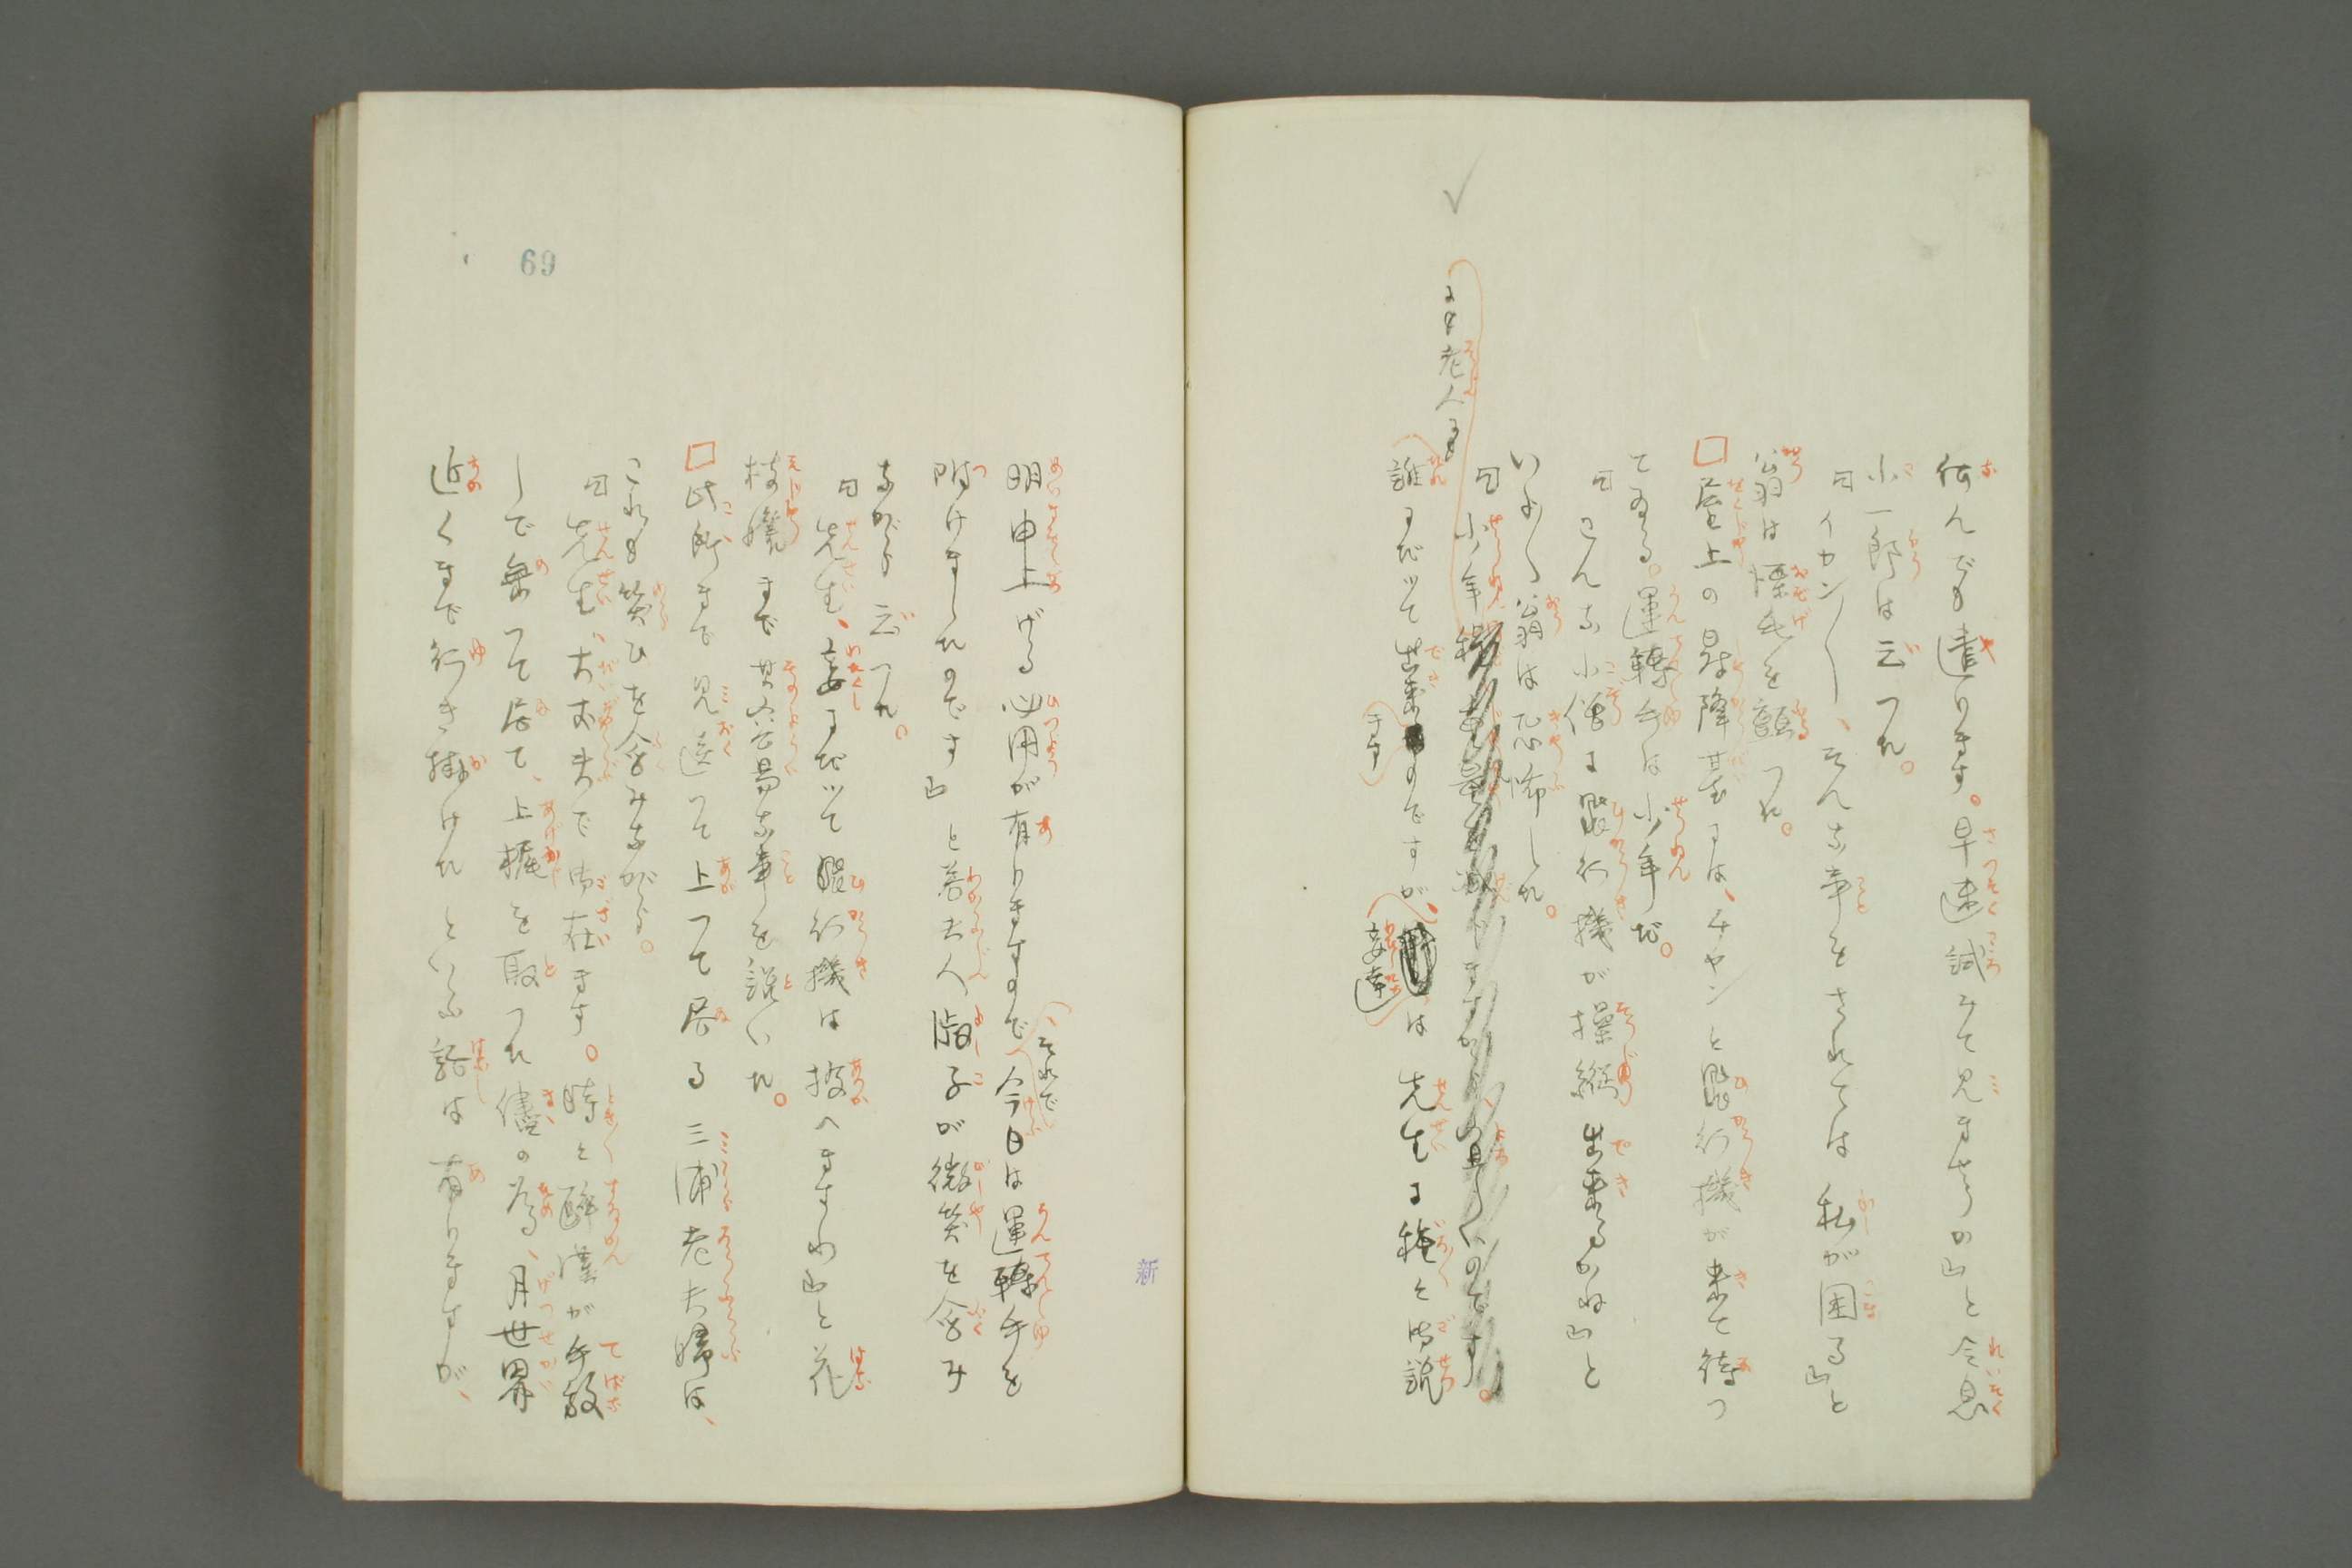 何んでも遣ります。早速試みて見ませうか」と令息
小一郎は云つた。
「イカン〳〵、そんな事をされては私が困る」と
翁は怖毛を顫つた。
□屋上の昇降基には、チャンと飛行機が来て待つ
て居る。運轉手は少年だ。
「こんな小僧に飛行機が操縦出来るかね」と
いよ〳〵翁は恐怖した。
「少年
ますから宜しいのです。
にも老人にも
誰にだツて出来
ます
のですが、
妾達
は先生に種々御説
明申上げる必用が有りますので
それで
今日は運轉手を
附けましたのです」と若夫人淑子が微笑を含み
ながら云つた。
「先生、妾にだツて飛行機は扱へますわ」と花
枝孃まで其容昜な事を説いた。
□此所まで見送つて上つて居る三浦老夫婦は、
これも笑ひを含みながら。
「先生、大丈夫で御在ます。時々醉漢が手放
しで乗つて居て、上梶を取つた儘の為、月世界
近くまで行き掛けたといふ話は有りますが、
69
新